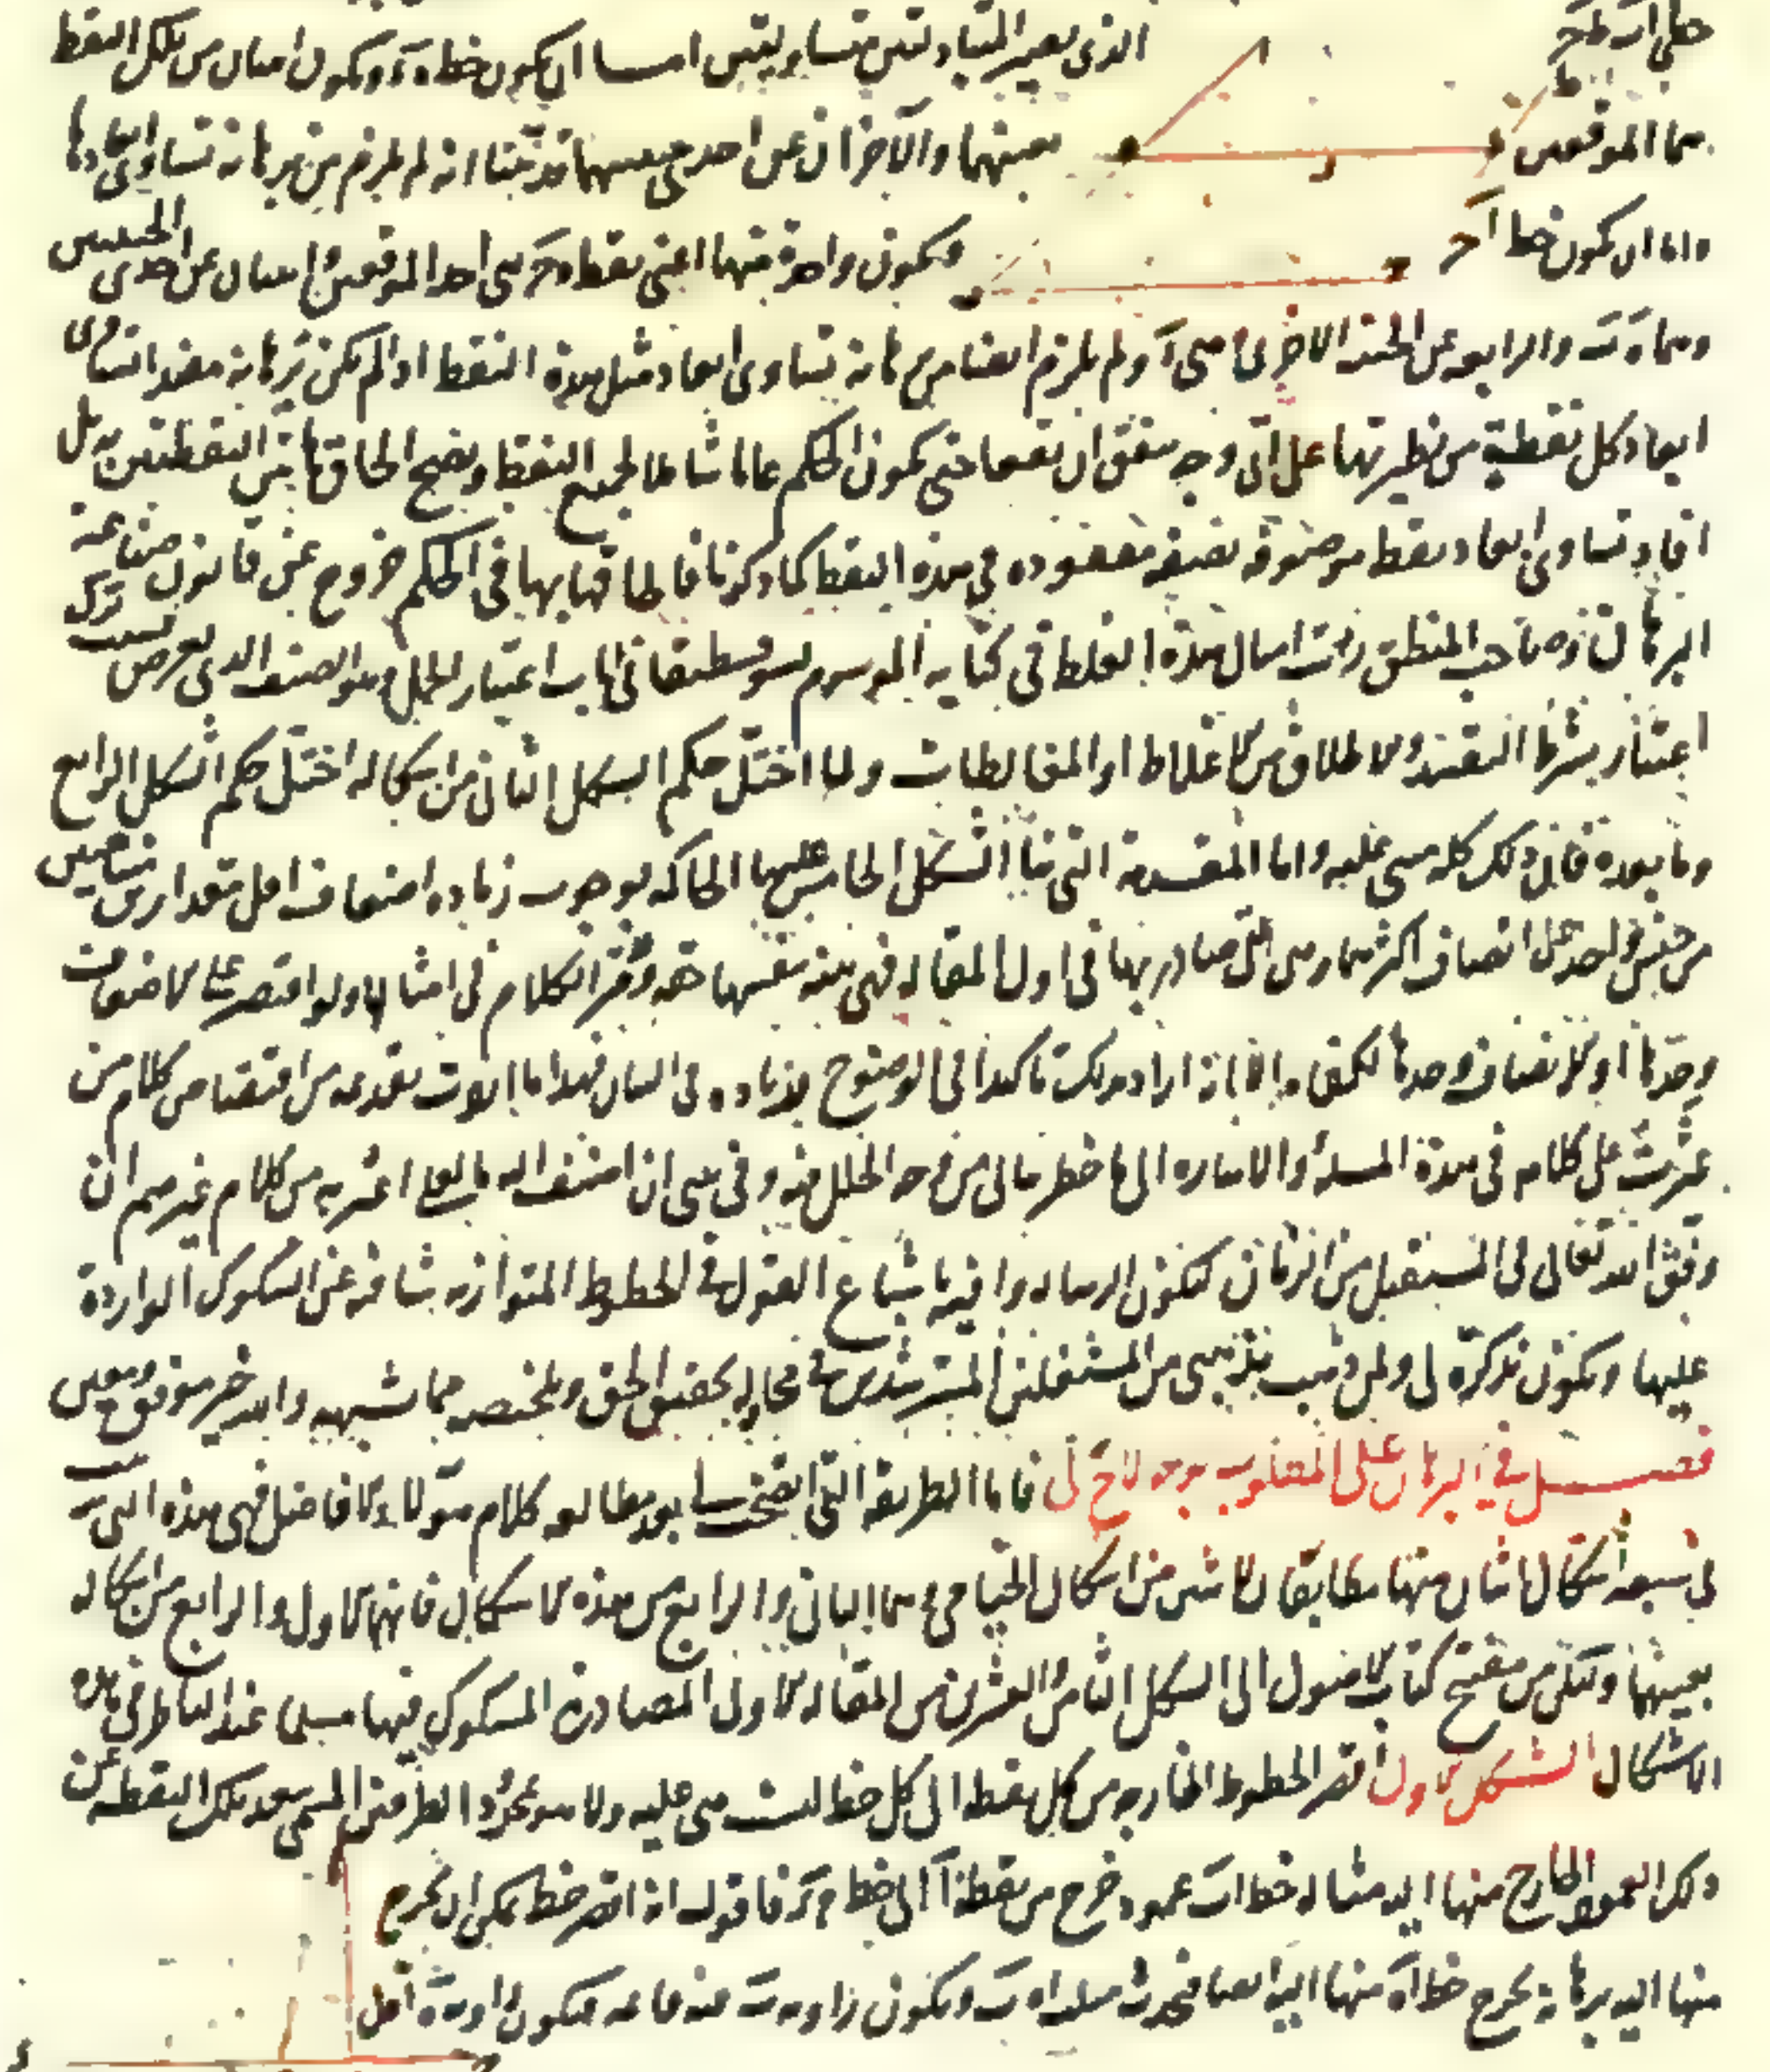 خطى اب طح الذى يصير المتبادلتين متساويتين اما ان يكون خطا ويكون اثنان من تلك النقط
هما الموقعين بعينهما والآخران عن احدى جهتيهما قد بينا انه لم يلزم من برهانه تساوى ابعادها
واما ان يكون خطا فيكون واحدة منها اعنى نقطة هى احد الموقعين واثنان عن احدى الجهتين
وهما والرابعة عن الجهة الاخرى وهى آ ولم يلزم ايضا من برهانه تساوى ابعاد مثل هذه النقط اذ لم يكن برهانه مفيدا تساوى
ابعاد كل نقطة من نظيرتها على اى وجه يتفق ان تقعا حتى يكون الحكم عاما شاملا لجميع النقط ويصح الحاق هاتين النقطتين به بل
افاد تساوى ابعاد نقط موصوفة بصفة مفقوده فى هذه النقط كما ذكرنا فالحاقها بها فى الحكم خروج عن قانون صناعة
البرهان وصاحب المنطق امثال هذه الغلط فى كتابه الموسوم بسوفسطيقا فى باب اعتبار الحمل وهو الصنف الذى يعرض بسبب ترك
اعتبار شرط التقييد والاطلاق من الاغلاط او المغالطات ولما اختل حكم الشكل الثانى من اشكاله اختل حكم الشكل الرابع
وما بعده فان ذلك كله مبنى عليه واما المقدمة التى بنا الشكل الخامس عليها الحاكمة بوجوب زياده اضعاف اقل مقدارين متناهيين
من جنس واحد على اضعاف اكثرهما وهى التى صادر بها فى اول المقاله فهى بينة بنفسها حقه وفر الكلام فى امثالها ولو اقتصر على الاضعاف
وحدها او الانصاف وحدها لكفى وانما اراد بذلك تاكيدا فى الوضوح بزياده فى البيان فهذا ما اردت تقديمه من اقتصاص كلام من
عثرت على كلامه فى هذه المسئلة والاشاره الى ما خطر ببالى من وجه الخلل فيه وفى نيتى ان اضيف اليه ما لعلى اعثر به من كلام غيرهم ان
وفق الله تعالى فى المستقبل من الزمان لتكون الرساله وافية باشباع القول فى الخطوط المتوازيه شافية عن الشكوك الواردة
عليها ويكون تذكرة لى ولمن ذهب مذهبى من المشتغلين المسترشدين فى محاولة تحقيق الحق وتلخيصه مما شبهه والله خير موفق ومعين
فصل فى البرهان على المطلوب بوجه لاح لى فاما الطريقه التى اتضحت لى بعد مطالعه كلام هؤلاء الافاضل فهى هذه التى
فى سبعه اشكال اثنان منها مطابقان لاثنين من اشكال الخيامى وهما الثانى والرابع من هذه الاشكال فانهما الاول والرابع من اشكاله
بعينهما ولتكن من مفتتح كتاب الاصول الى الشكل الثامن والعشرين من المقاله الاولى المصادرة المشكوك فيها مسلما عند الناظر فى هذه
الاشكال الشكل الاول اقصر الخطوط الخارجه من كل نقطه الى كل خط ليست هى عليه ولا هو محدود الطرفين المسمى بعد تلك النقطه عن
ذلك العمود الخارج منها اليه مثاله خط اب عمود خرج من نقطة آ الى خط ح د فاقول انه اقصر خط يمكن ان يخرج
منها اليه برهانه يخرج خط اه منها اليه ايضا فيحدث مثلث اه ب ويكون زاويه ب منه قائمه فيكون زاوية ه اقل